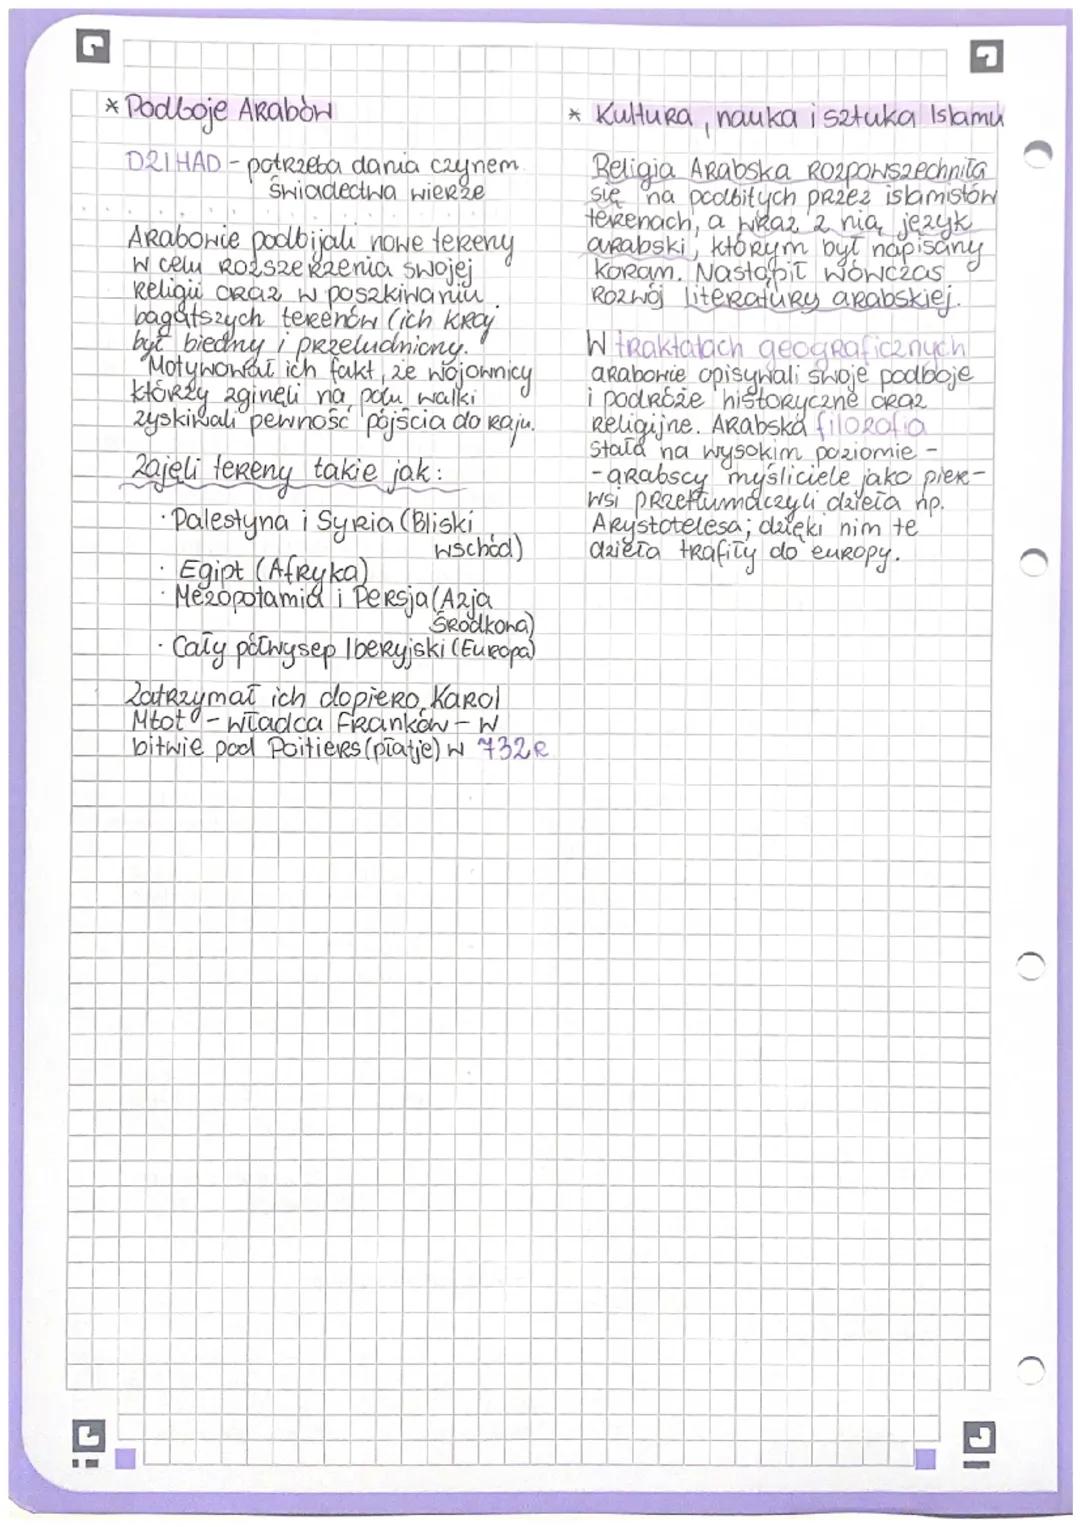 * Podboje Arabów
DZIHAD - potrzeba dania czynem
świadectwa wierze
Arabowie podbijali nowe tereny
w celu rozszerzenia swojej
religii oraz w poszkiwaniu
bagatszych terenów (ich kraj
był biedny i przeludniony.
Motywował ich fakt, że wojownicy
którzy zginęli na polu walki
zyskiwali pewność pójścia do raju.
Zajęli tereny takie jak:
· Palestyna i Syria (Bliski
wschód)
· Egipt (Afryka)
· Mezopotamia i Persja (Azja
Środkowa)
· Cały półwysep Iberyjski (Europa)
Zatrzymał ich dopiero Karol
Młot - władca Franków - w
bitwie pod Poitiers (płatje) w 732r
* Kultura, nauka i sztuka Islamu
Religia Arabska rozpowszechniła
się na podbitych przez islamistów
terenach, a wraz z nią język
arabski, którym był napisany
koram. Nastąpił wówczas
rozwój literatury arabskiej.
W traktatach geograficznych
arabowie opisywali swoje podboje
i podróże historyczne oraz
religijne. Arabska filozofia
stała na wysokim poziomie -
- arabscy myśliciele jako pier-
wsi przetłumaczyli dzieła np.
Arystotelesa; dzięki nim te
dzieła trafiły do europy.